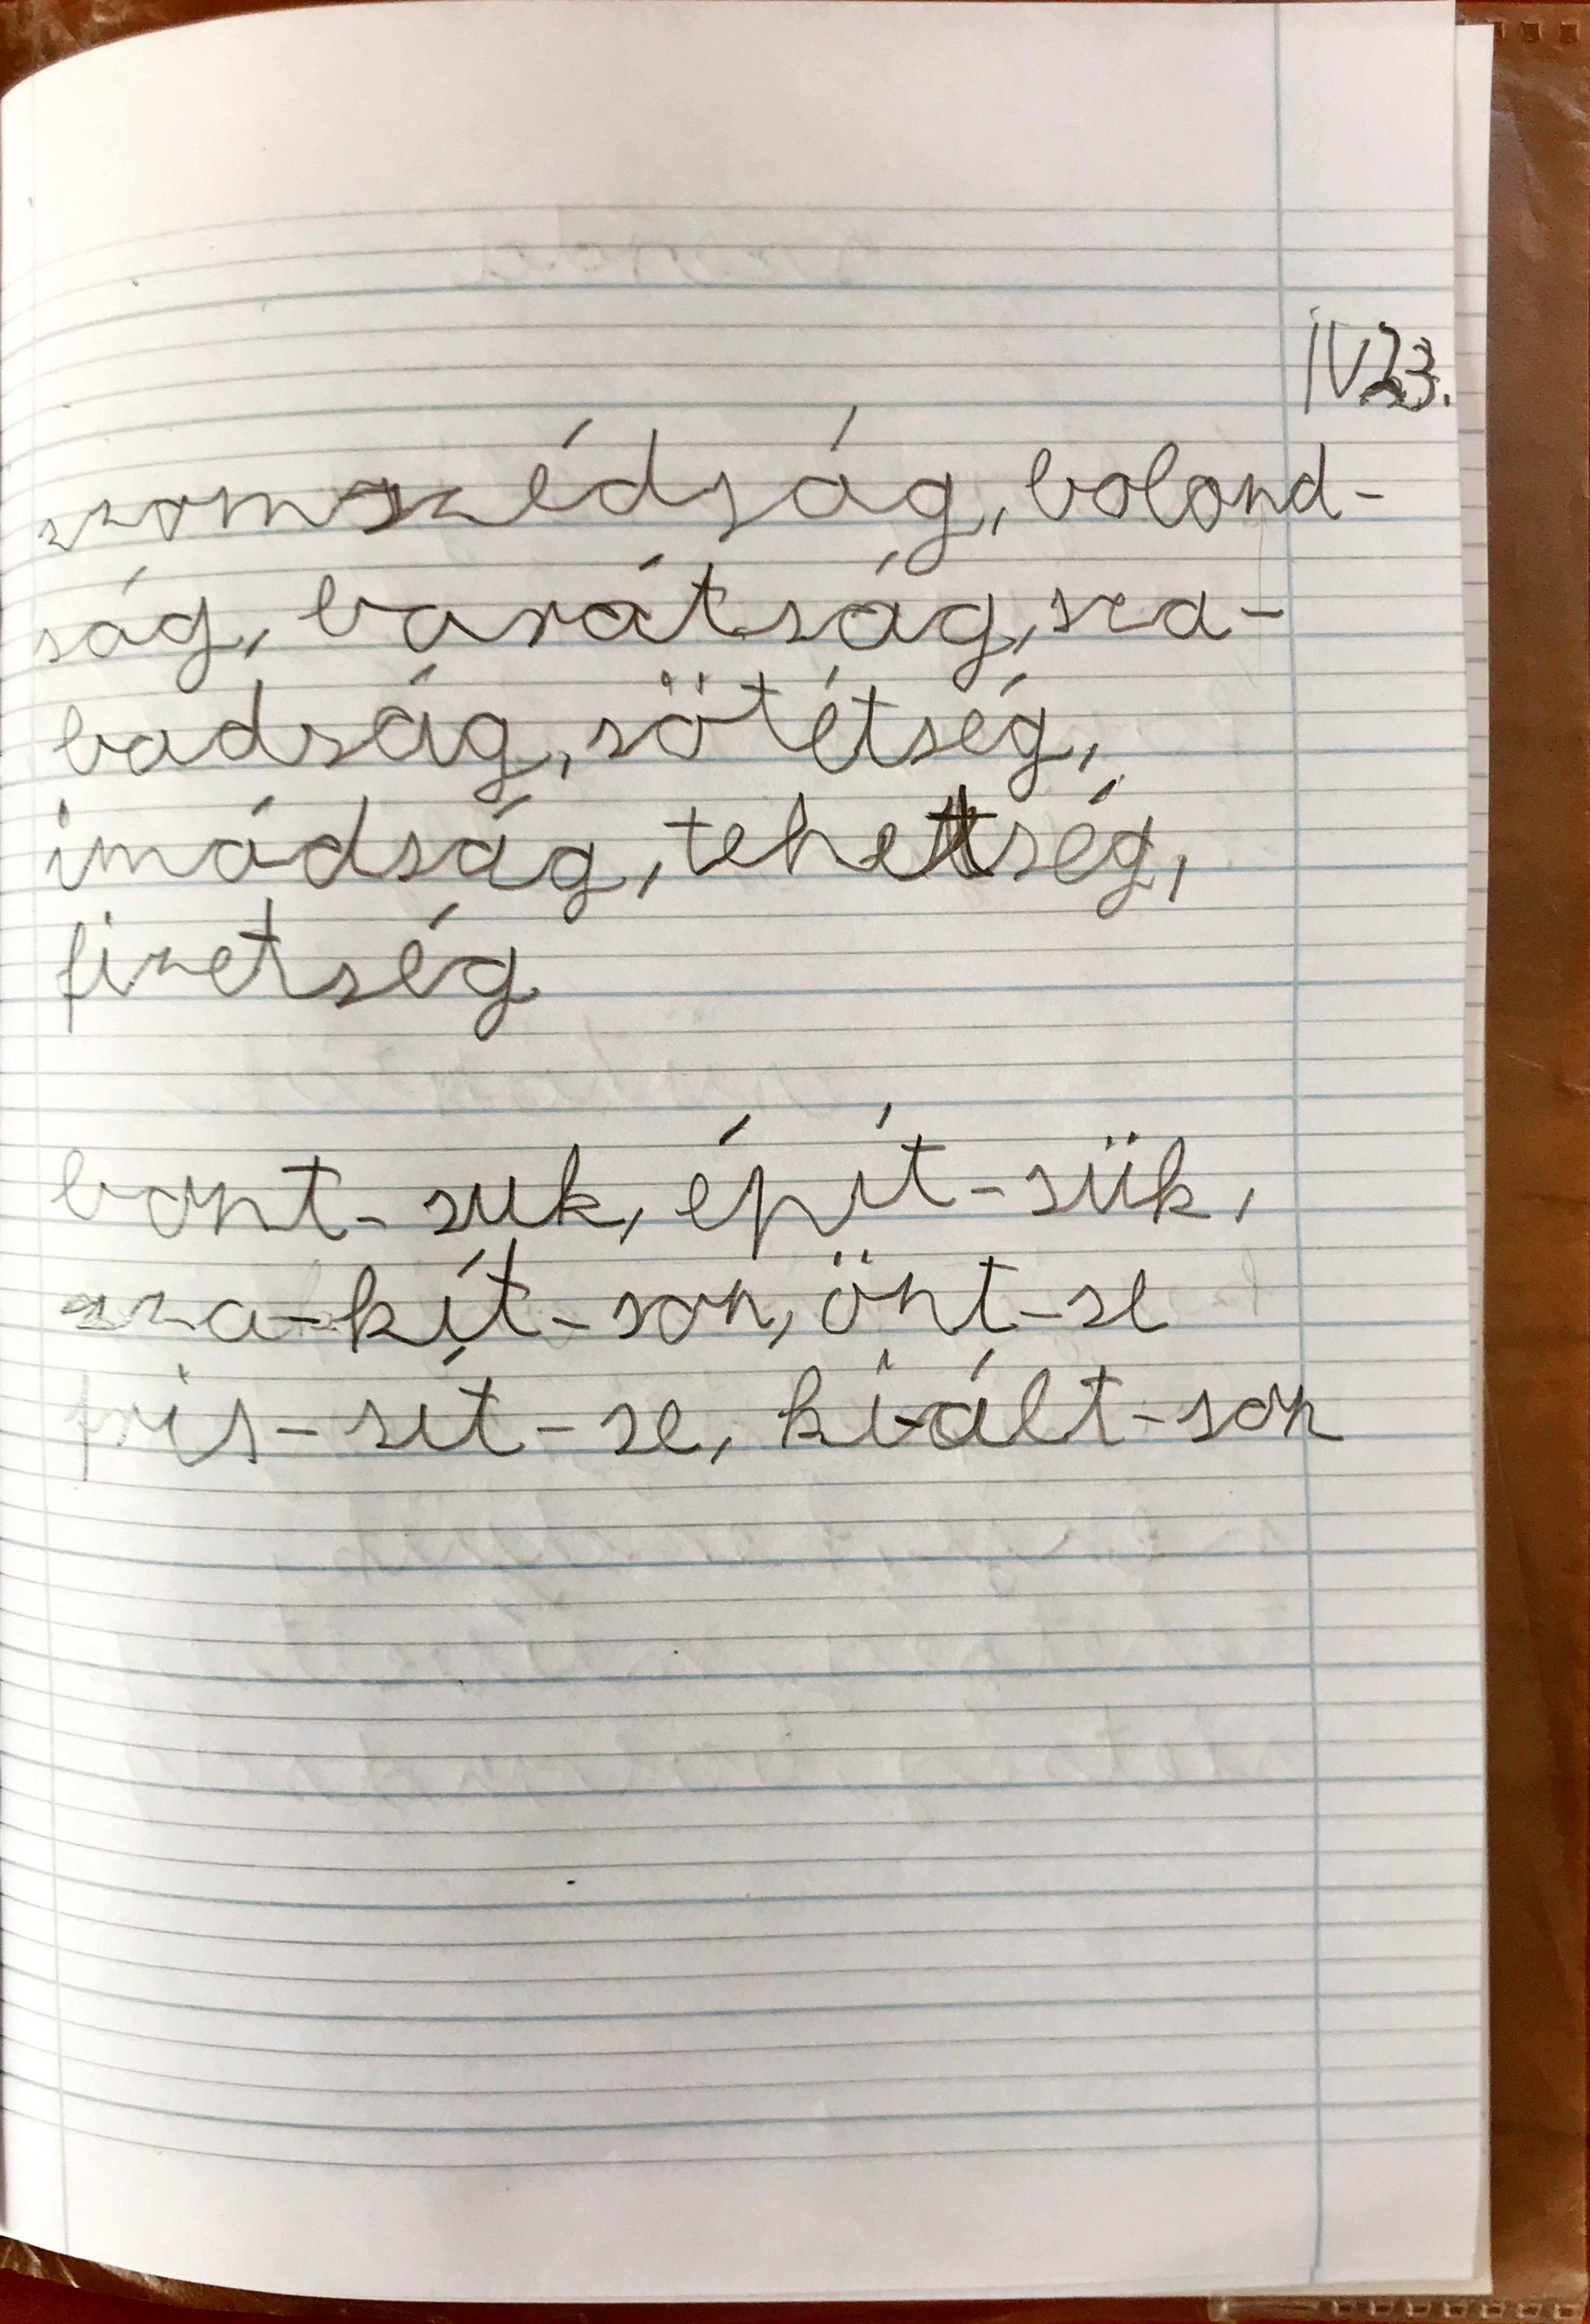 IV23.
szomszédság, bolond-
ság, barátság, sza-
badság, sötétség,
imádság, tehetség,
fizetség
bont-suk, épít-sük,
sza-kít-son, önt-se
fris-sít-se, ki-ált-son